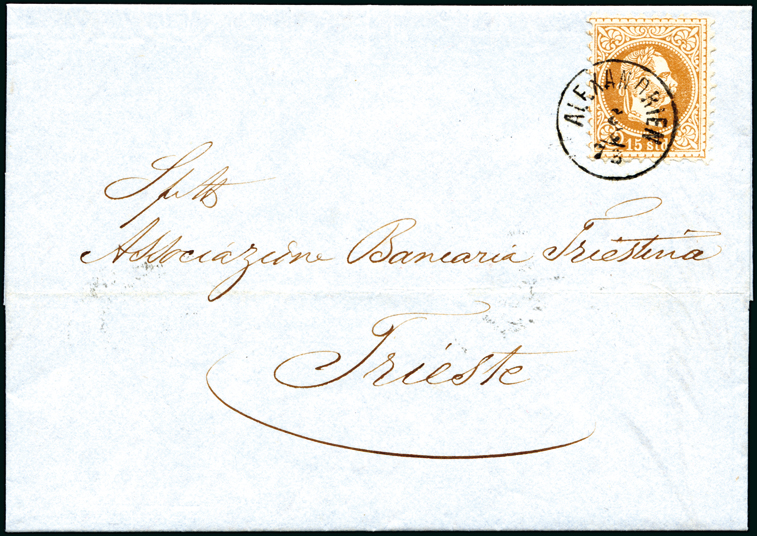 ALEXANDRIEN
15 sld
Spett
Associazione Bancaria Triestina
Trieste